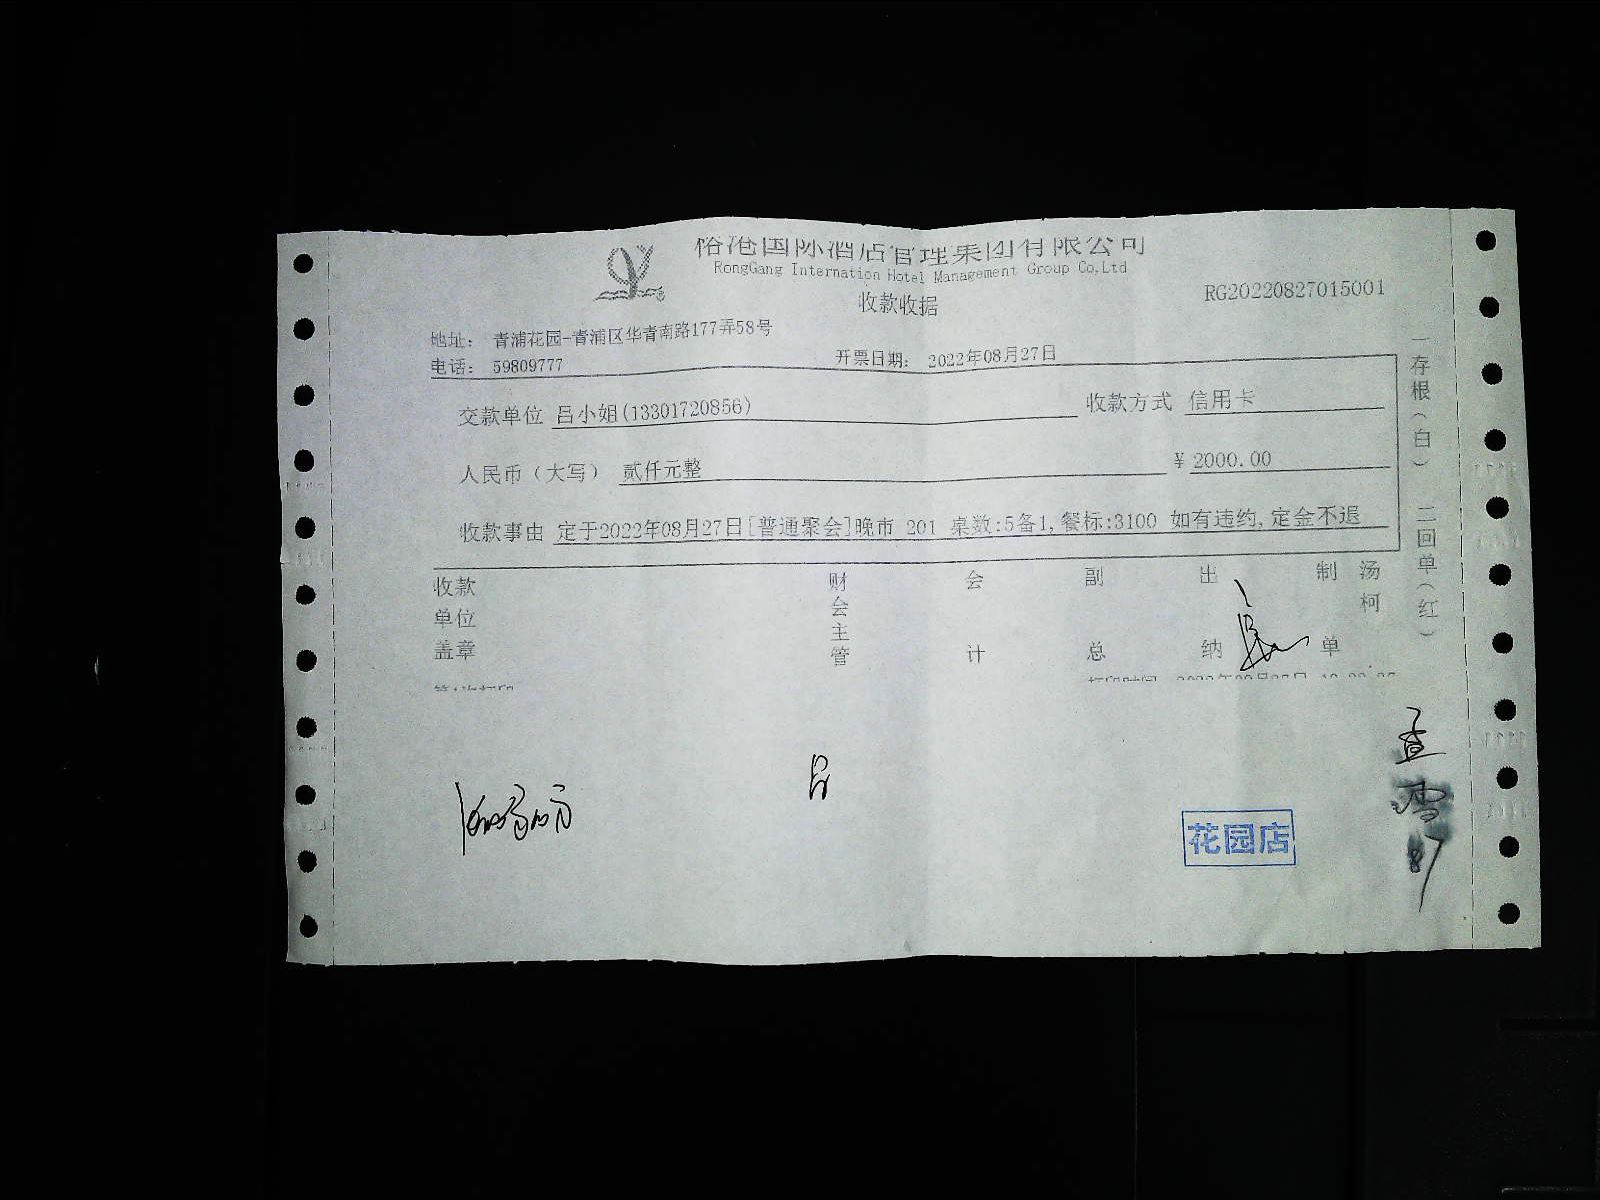 榕港国际酒店管理集团有限公司
RongGang Internation Hotel Management Group Co,Ltd
收款收据
RG20220827015001
地址: 青浦花园-青浦区华青南路177弄58号
电话: 59809777 开票日期: 2022年08月27日
交款单位 吕小姐(13301720856) 收款方式 信用卡
人民币（大写） 贰仟元整 ¥ 2000.00
收款事由 定于2022年08月27日[普通聚会]晚市 201 桌数:5备1,餐标:3100 如有违约,定金不退
收款单位盖章 财会主管 会计 副总 出纳 制单 汤柯
一存根（白） 二回单（红）
花园店